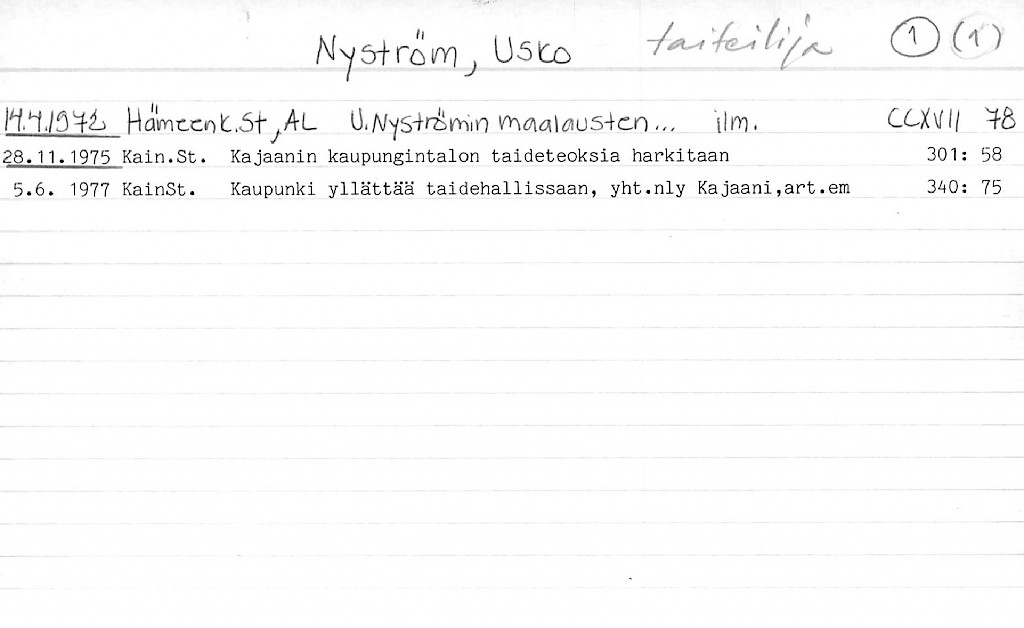 Nyström, Usko taiteilija 1 (1)
14.4.1972 Hämeenk.St, AL U.Nyströmin maalausten... ilm. CCXVII 78
28.11.1975 Kain.St. Kajaanin kaupungintalon taideteoksia harkitaan 301: 58
5.6. 1977 KainSt. Kaupunki yllättää taidehallissaan, yht.nly Kajaani,art.em 340: 75